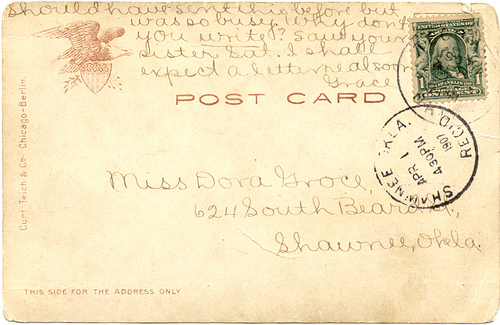 should have sent this before but
was so busy. Why don't
you write? Saw your
sister Sat. I shall
expect a letter real soon
Grace
POST CARD
SHAWNEE OKLA.
APR 1
430PM
1907
REC'D.
Miss Dora Groce
624 South Beard St.,
Shawnee, Okla.
Curt Teich & Co. Chicago-Berlin.
THIS SIDE FOR THE ADDRESS ONLY